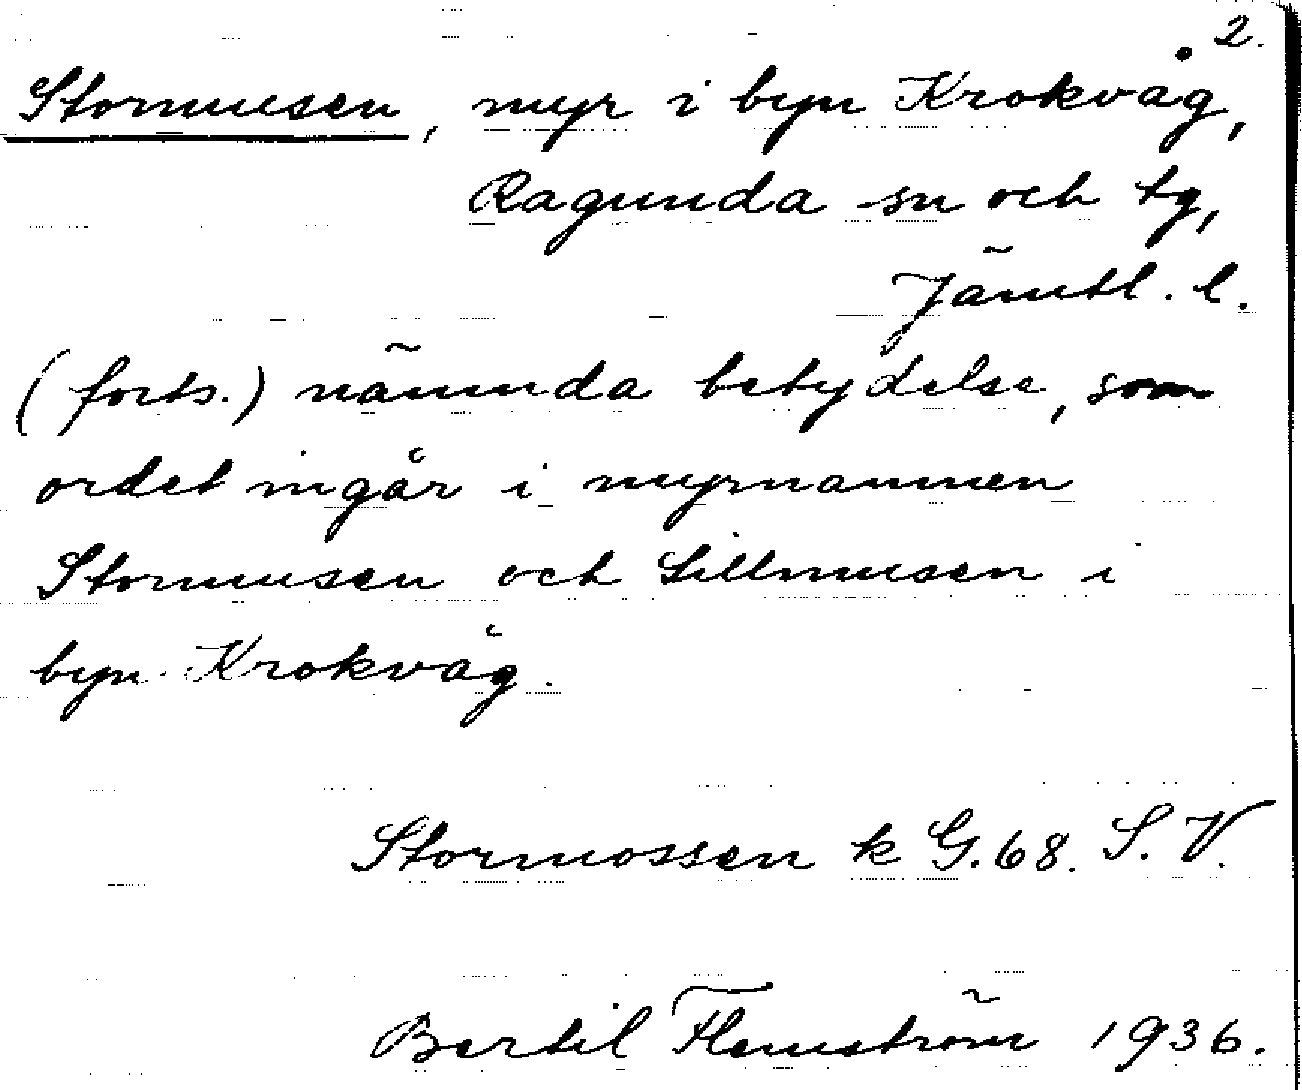 2.
Stormusen, myr i byn Krokvåg,
Ragunda sn och tg,
Jämtl. l.
(forts.) nämnda betydelse, som
ordet ingår i myrnamnen
Stormusen och Lillmusen i
byn Krokvåg.
Stormossen k G.68. S.V.
Bertil Flemström 1936.